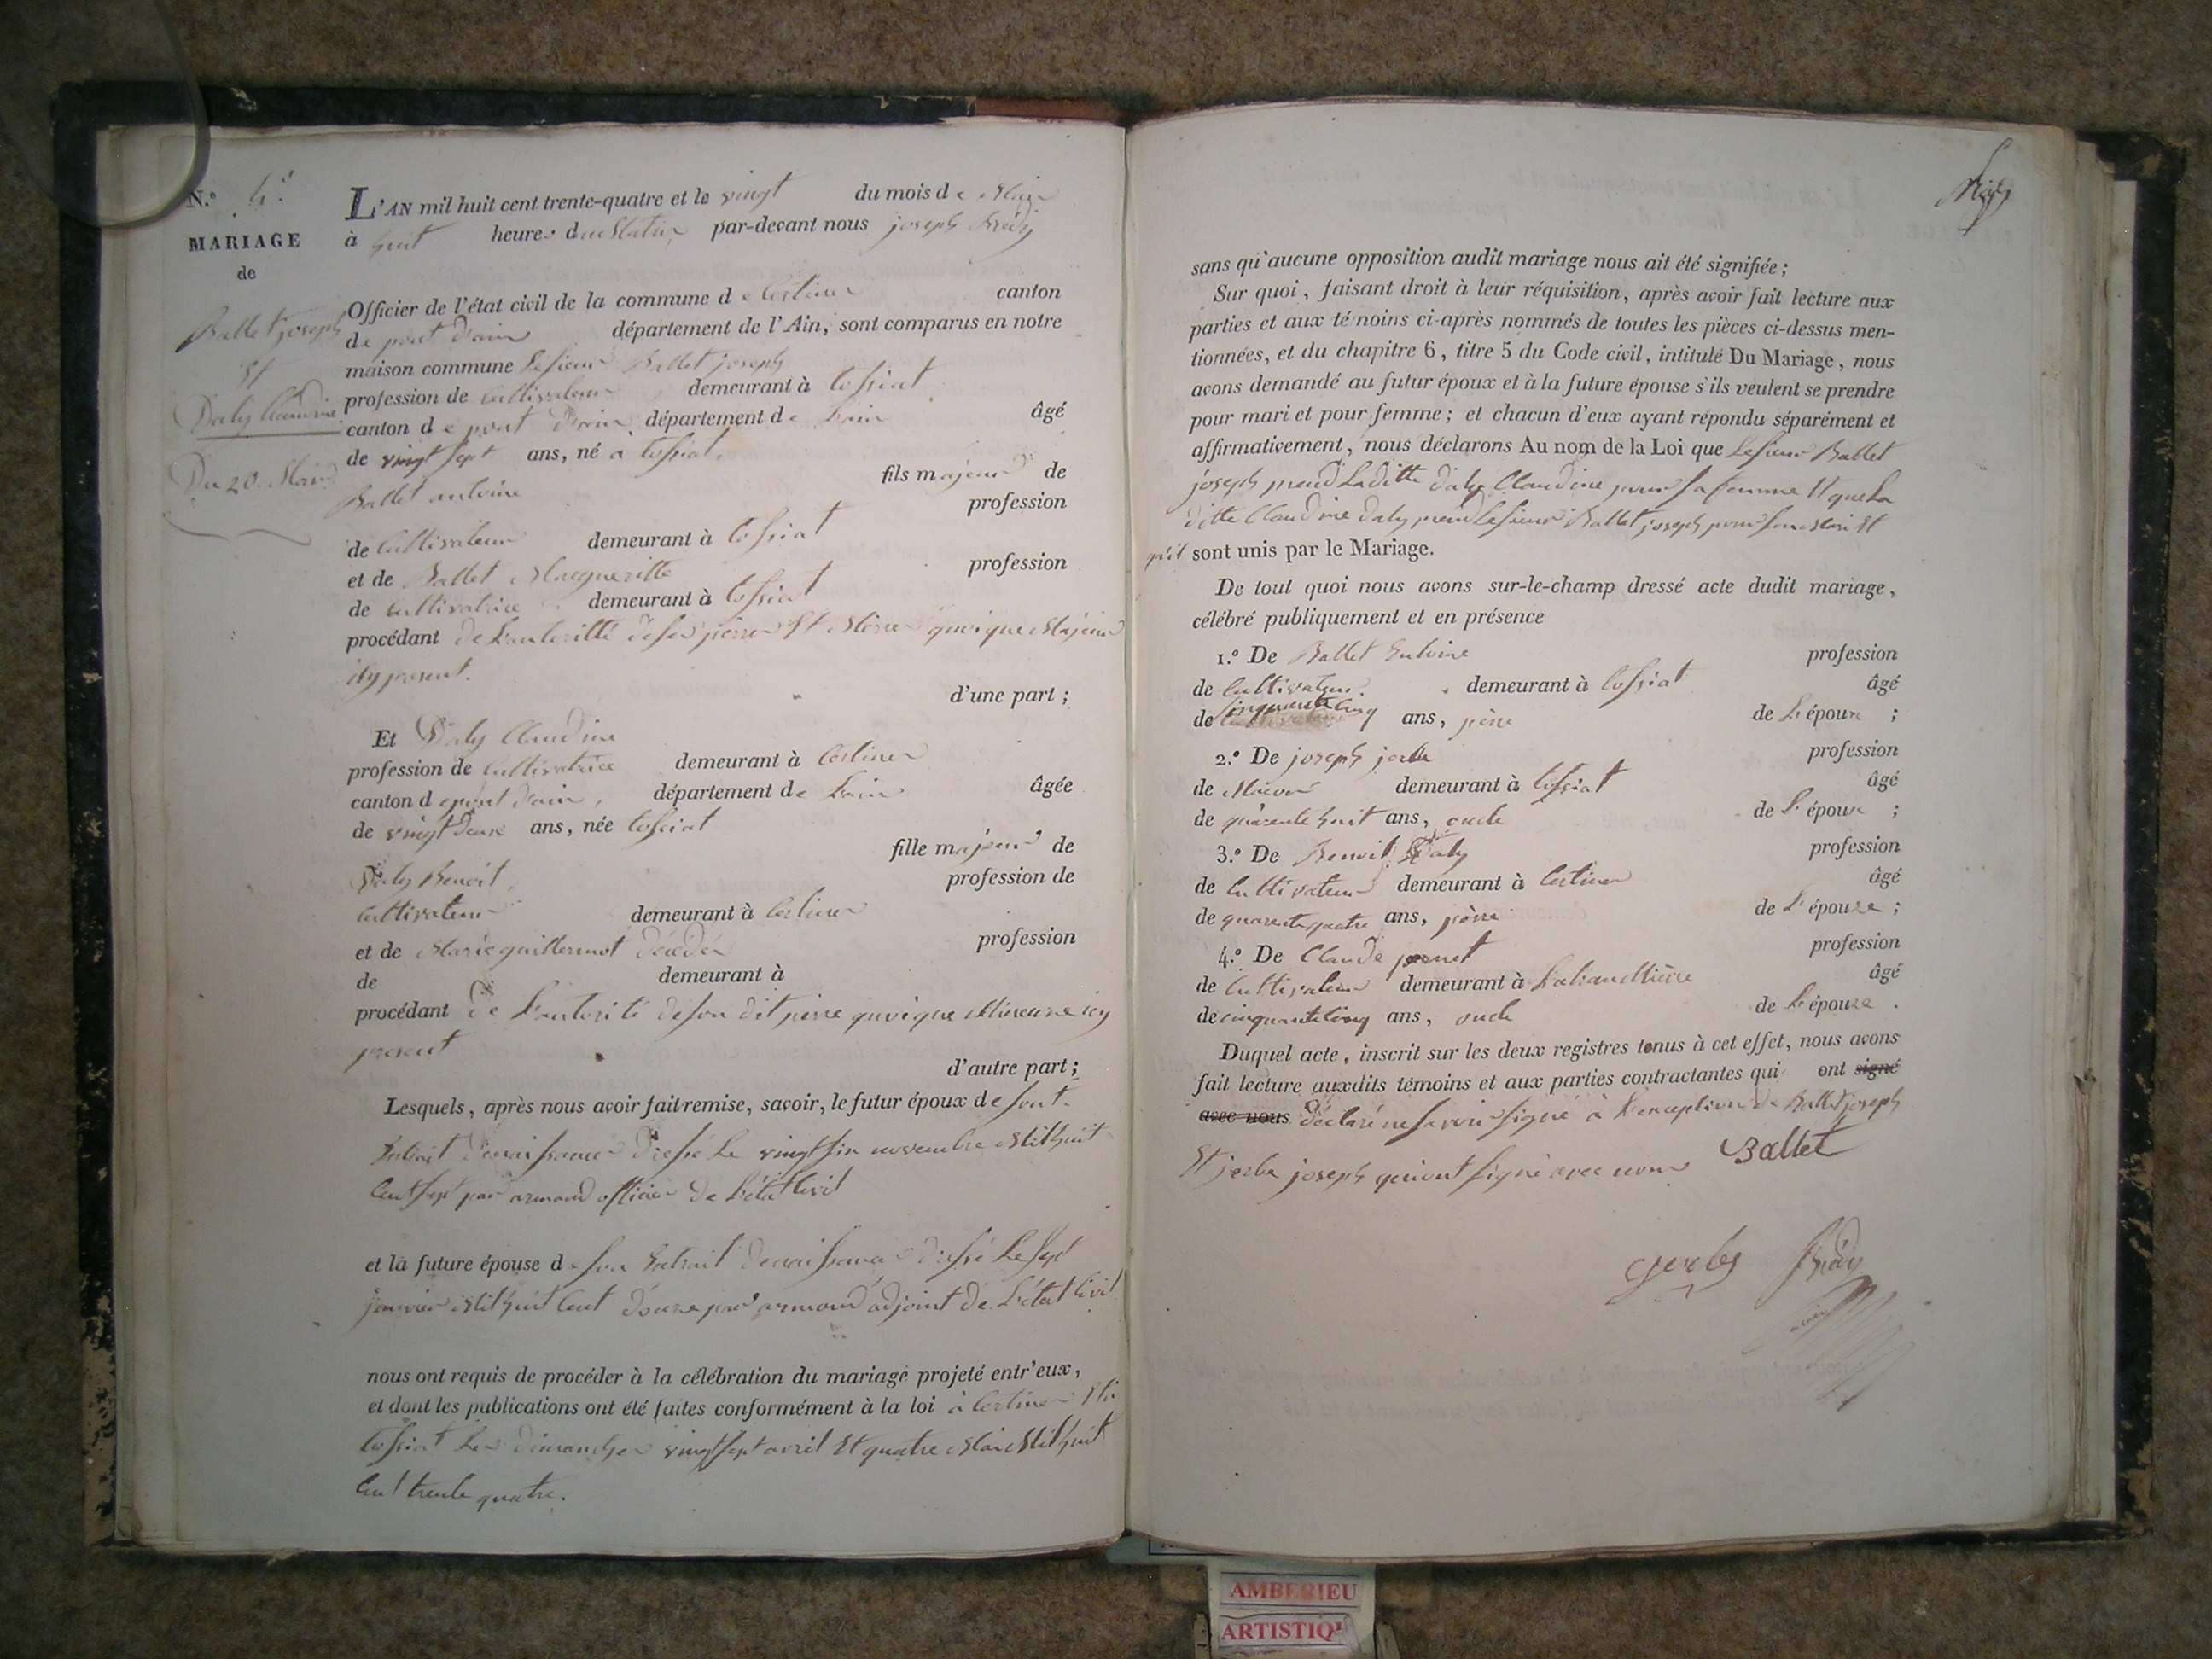 N.º 4.
MARIAGE
de
Ballet joseph
Et
Daly Claudine
Du 20. Mai
L'AN mil huit cent trente-quatre et le vingt du mois de Mai
à huit heures du Matin par-devant nous joseph
Officier de l'état civil de la commune de Certines canton
de pont d'ain département de l'Ain, sont comparus en notre
maison commune Le sieur Ballet joseph
profession de cultivateur demeurant à tossiat
canton de pont d'ain département de L'ain âgé
de vingt sept ans, né à tossiat.
fils majeur de
Ballet antoine
profession
de Cultivateur demeurant à tossiat
et de Ballet Margueritte profession
de cultivatrice demeurant à tossiat
procédant de L'autorité de ses père Et Mère quoique Majeur
icy present.
d'une part ;
Et Daly Claudine
profession de Cultivatrice demeurant à Certines
canton de pont d'ain, département de L'ain âgée
de vingt deux ans, née tossiat
fille majeur de
Daly Benoit, profession de
Cultivateur demeurant à Certines
et de Marie guillermot décédée profession
de demeurant à
procédant de L'autorité de son dit père quoique Mineure icy
present
d'autre part ;
Lesquels, après nous avoir fait remise, savoir, le futur époux de sont
Extrait de naissance Dressé Le vingt six novembre Mil huit
Cent sept par armand officier de L'état Civil
et la future épouse de son Extrait de naissance dressé Le sept
janvier Mil huit Cent douze par armand adjoint de L'état Civil
nous ont requis de procéder à la célébration du mariage projeté entr'eux,
et dont les publications ont été faites conformément à la loi à Certines Et à
tossiat Les dimanches vingt sept avril Et quatre Mai Mil huit
Cent trente quatre.
sans qu'aucune opposition audit mariage nous ait été signifiée ;
Sur quoi, faisant droit à leur réquisition, après avoir fait lecture aux
parties et aux témoins ci-après nommés de toutes les pièces ci-dessus men-
tionnées, et du chapitre 6, titre 5 du Code civil, intitulé Du Mariage, nous
avons demandé au futur époux et à la future épouse s'ils veulent se prendre
pour mari et pour femme ; et chacun d'eux ayant répondu séparément et
affirmativement, nous déclarons Au nom de la Loi que Le sieur Ballet
joseph prend Laditte daly Claudine pour sa femme Et que La
ditte Claudine daly prend Le sieur Ballet joseph pour son Mari Et
qu'il sont unis par le Mariage.
De tout quoi nous avons sur-le-champ dressé acte dudit mariage,
célébré publiquement et en présence
1.º De Ballet Entoine profession
de Cultivateur. demeurant à tossiat âgé
de Cinquante Cinq ans, père de L'époux ;
2.º De joseph jerbe profession
de Macon demeurant à tossiat âgé
de quarente huit ans, oncle de L'époux ;
3.º De Benoit Daly profession
de Cultivateur demeurant à Certines âgé
de quarente quatre ans, père de L'épouse ;
4.º De Claude profession
de Cultivateur demeurant à âgé
de cinquante Cinq ans, oncle de L'épouse .
Duquel acte, inscrit sur les deux registres tenus à cet effet, nous avons
fait lecture auxdits témoins et aux parties contractantes qui ont signé
avec nous déclaré ne savoir signé à L'exception de Ballet joseph
Et jerbe joseph qui ont signé avec nous
Ballet
gerbe
AMBERIEU
ARTISTIQ